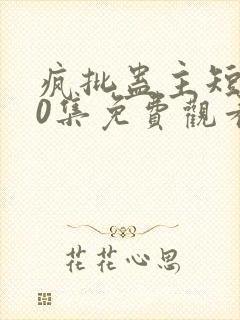 疯批蛊主短
0集免費觀看
花花心思